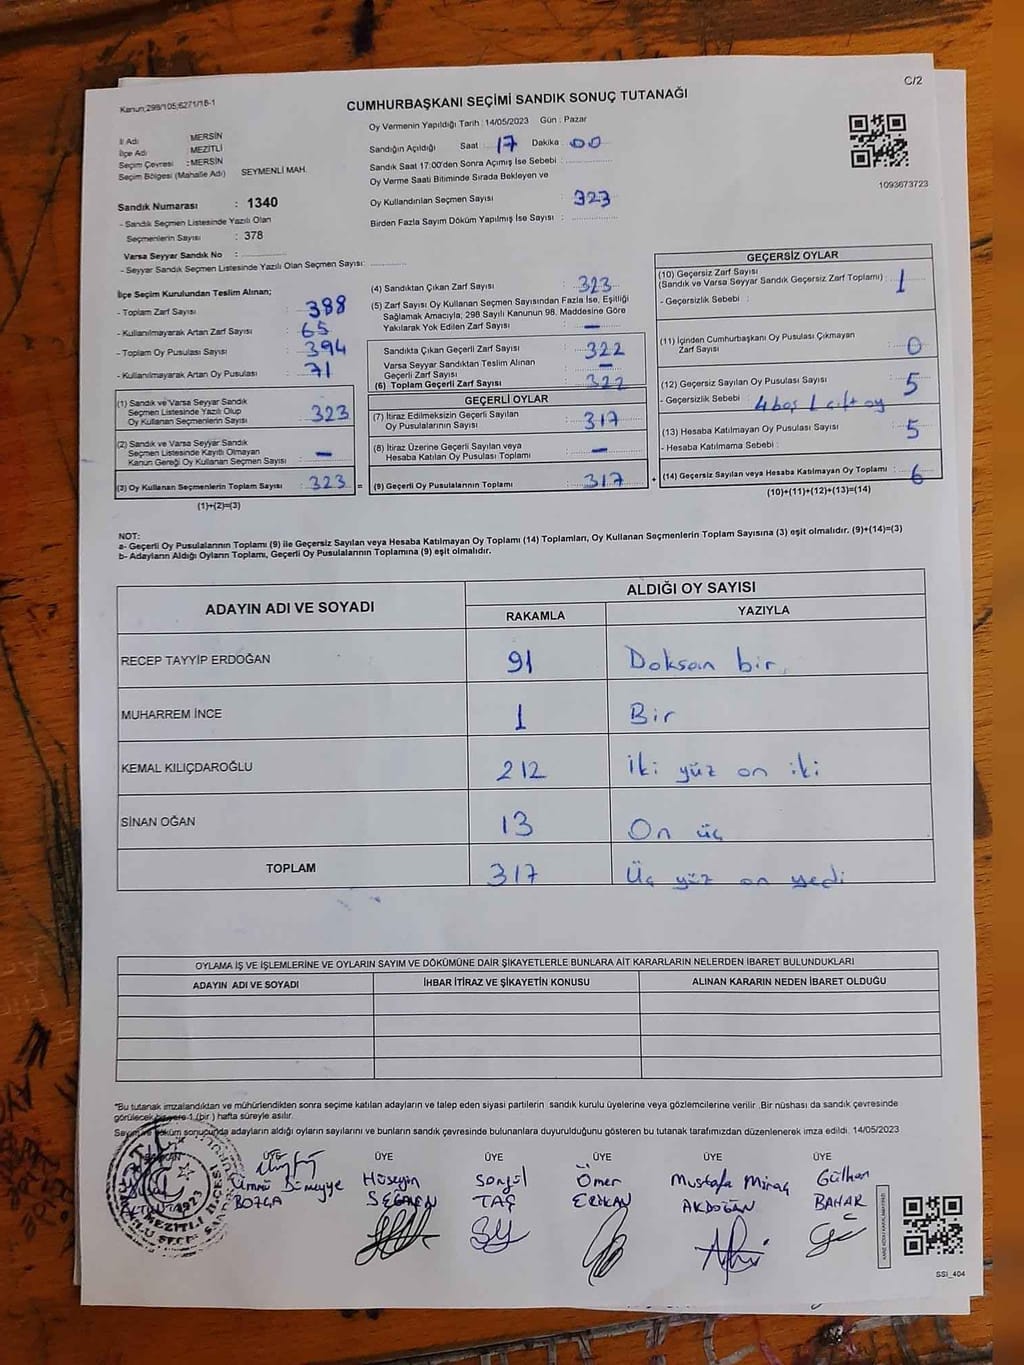 C/2
Kanun;298/105;6271/18-1
CUMHURBAŞKANI SEÇİMİ SANDIK SONUÇ TUTANAĞI
İl Adı MERSİN
İlçe Adı MEZİTLİ
Seçim Çevresi : MERSİN
Seçim Bölgesi (Mahalle Adı) SEYMENLİ MAH.
Sandık Numarası : 1340
- Sandık Seçmen Listesinde Yazılı Olan
Seçmenlerin Sayısı : 378
Varsa Seyyar Sandık No :
- Seyyar Sandık Seçmen Listesinde Yazılı Olan Seçmen Sayısı:
Oy Vermenin Yapıldığı Tarih : 14/05/2023 Gün : Pazar
Sandığın Açıldığı Saat : 17 Dakika : 00
Sandık Saat 17:00'den Sonra Açımış İse Sebebi :
Oy Verme Saati Bitiminde Sırada Bekleyen ve
Oy Kullandırılan Seçmen Sayısı : 323
Birden Fazla Sayım Döküm Yapılmış İse Sayısı :
1093673723
İlçe Seçim Kurulundan Teslim Alınan;
- Toplam Zarf Sayısı : 388
- Kullanılmayarak Artan Zarf Sayısı : 65
- Toplam Oy Pusulası Sayısı : 394
- Kullanılmayarak Artan Oy Pusulası : 71
(1) Sandık ve Varsa Seyyar Sandık
Seçmen Listesinde Yazılı Olup
Oy Kullanan Seçmenlerin Sayısı : 323
(2) Sandık ve Varsa Seyyar Sandık
Seçmen Listesinde Kayıtlı Olmayan
Kanun Gereği Oy Kullanan Seçmen Sayısı : –
(3) Oy Kullanan Seçmenlerin Toplam Sayısı : 323 =
(1)+(2)=(3)
(4) Sandıktan Çıkan Zarf Sayısı : 323
(5) Zarf Sayısı Oy Kullanan Seçmen Sayısından Fazla İse, Eşitliği
Sağlamak Amacıyla; 298 Sayılı Kanunun 98. Maddesine Göre
Yakılarak Yok Edilen Zarf Sayısı : –
Sandıkta Çıkan Geçerli Zarf Sayısı : 322
Varsa Seyyar Sandıktan Teslim Alınan
Geçerli Zarf Sayısı : –
(6) Toplam Geçerli Zarf Sayısı : 322
GEÇERLİ OYLAR
(7) İtiraz Edilmeksizin Geçerli Sayılan
Oy Pusulalarının Sayısı : 317
(8) İtiraz Üzerine Geçerli Sayılan veya
Hesaba Katılan Oy Pusulası Toplamı : –
(9) Geçerli Oy Pusulalarının Toplamı : 317 +
GEÇERSİZ OYLAR
(10) Geçersiz Zarf Sayısı
(Sandık ve Varsa Seyyar Sandık Geçersiz Zarf Toplamı) : 1
- Geçersizlik Sebebi :
(11) İçinden Cumhurbaşkanı Oy Pusulası Çıkmayan
Zarf Sayısı : 0
(12) Geçersiz Sayılan Oy Pusulası Sayısı : 5
- Geçersizlik Sebebi : 4 boş 1 çift oy
(13) Hesaba Katılmayan Oy Pusulası Sayısı : 5
- Hesaba Katılmama Sebebi :
(14) Geçersiz Sayılan veya Hesaba Katılmayan Oy Toplamı : 6
(10)+(11)+(12)+(13)=(14)
NOT:
a- Geçerli Oy Pusulalarının Toplamı (9) ile Geçersiz Sayılan veya Hesaba Katılmayan Oy Toplamı (14) Toplamları, Oy Kullanan Seçmenlerin Toplam Sayısına (3) eşit olmalıdır. (9)+(14)=(3)
b- Adayların Aldığı Oyların Toplamı, Geçerli Oy Pusulalarının Toplamına (9) eşit olmalıdır.
ADAYIN ADI VE SOYADI ALDIĞI OY SAYISI
RAKAMLA YAZIYLA
RECEP TAYYİP ERDOĞAN 91 Doksan bir
MUHARREM İNCE 1 Bir
KEMAL KILIÇDAROĞLU 212 İki yüz on iki
SİNAN OĞAN 13 On üç
TOPLAM 317 Üç yüz on yedi
OYLAMA İŞ VE İŞLEMLERİNE VE OYLARIN SAYIM VE DÖKÜMÜNE DAİR ŞİKAYETLERLE BUNLARA AİT KARARLARIN NELERDEN İBARET BULUNDUKLARI
ADAYIN ADI VE SOYADI İHBAR İTİRAZ VE ŞİKAYETİN KONUSU ALINAN KARARIN NEDEN İBARET OLDUĞU
*Bu tutanak imzalandıktan ve mühürlendikten sonra seçime katılan adayların ve talep eden siyasi partilerin sandık kurulu üyelerine veya gözlemcilerine verilir .Bir nüshası da sandık çevresinde
görülecek bir yere 1 (bir ) hafta süreyle asılır.
Sayım ve döküm sonucunda adayların aldığı oyların sayılarını ve bunların sandık çevresinde bulunanlara duyurulduğunu gösteren bu tutanak tarafımızdan düzenlenerek imza edildi. 14/05/2023
ÜYE ÜYE ÜYE ÜYE ÜYE ÜYE
Hüseyin Songül Ömer Mustafa Miraç Gülhan
BOZCA TAŞ AKDOĞAN BAHAR
1923
MEZİTLİ İLÇESİ
SSI_404